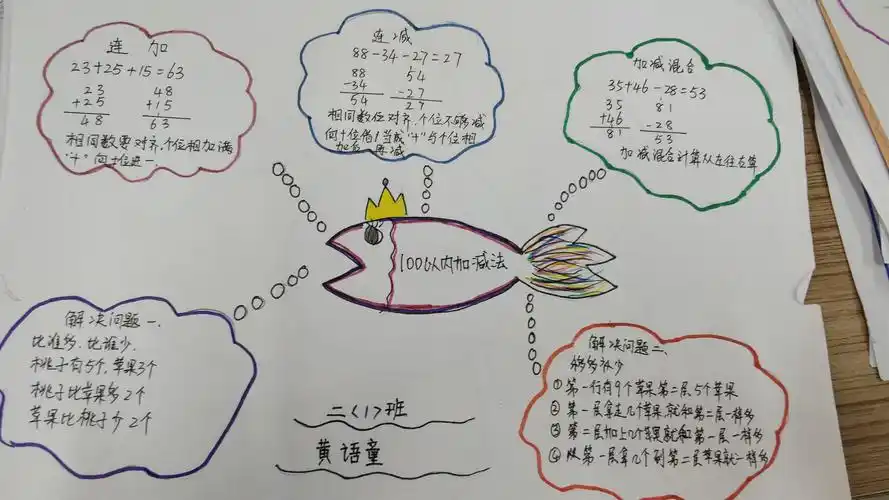 连 加
23+25+15=63
23 48
+25 +15
48 63
相同数要对齐,个位相加满
"十"向十位进一.
连 减
88-34-27=27
88 54
-34 -27
54 27
相同数位对齐,个位不够减
向十位借1当成"十"与个位相
加后 再减
加减混合
35+46-28=53
35 81
+46 -28
81 53
加减混合计算从左往右算
100以内加减法
解决问题一.
比谁多.比谁少.
桃子有5个,苹果3个
桃子比苹果多2个
苹果比桃子少2个
解决问题二、
移多补少
①第一行有9个苹果第二层5个苹果
②第一层拿走几个苹果,就和第二层一样多
③第二层加上几个苹果就和第一层一样多
④从第一层拿几个到第二层苹果就一样多
二<1>班
黄语童